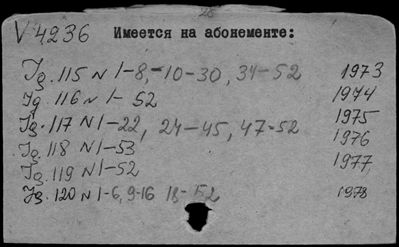 26
V 4236 Имеется на абонементе:
Jg. 115 N 1-8,-10-30, 34-52 1973
Jg. 116 N 1- 52 1974
Jg. 117 N 1-22, 24-45, 47-52 1975
Jg. 118 N 1-53 1976
Jg. 119 N 1-52 1977
Jg. 120 N 1-6, 9-16 18-52 1978